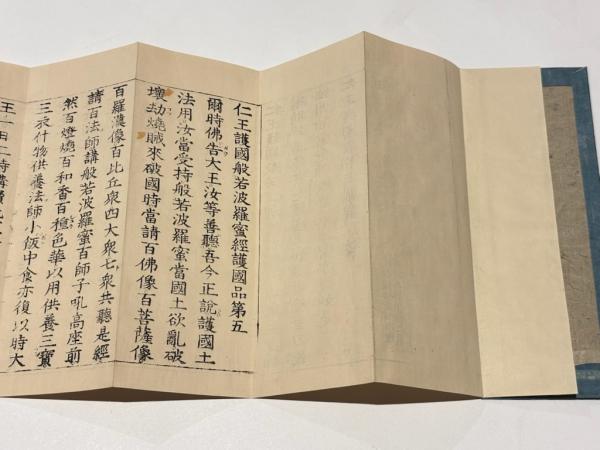 仁王護國般若波羅蜜經護國品第五
爾時佛告大王汝等善聽吾今正說護國土
法用汝當受持般若波羅蜜當國土欲亂破
壞劫燒賊來破國時當請百佛像百菩薩像
百羅漢像百比丘衆四大衆七衆共聽是經
請百法師講般若波羅蜜百師子吼高座前
然百燈燒百和香百種色華以用供養三寶
三衣什物供養法師小飯中食亦復以時大
王一日二時講讀